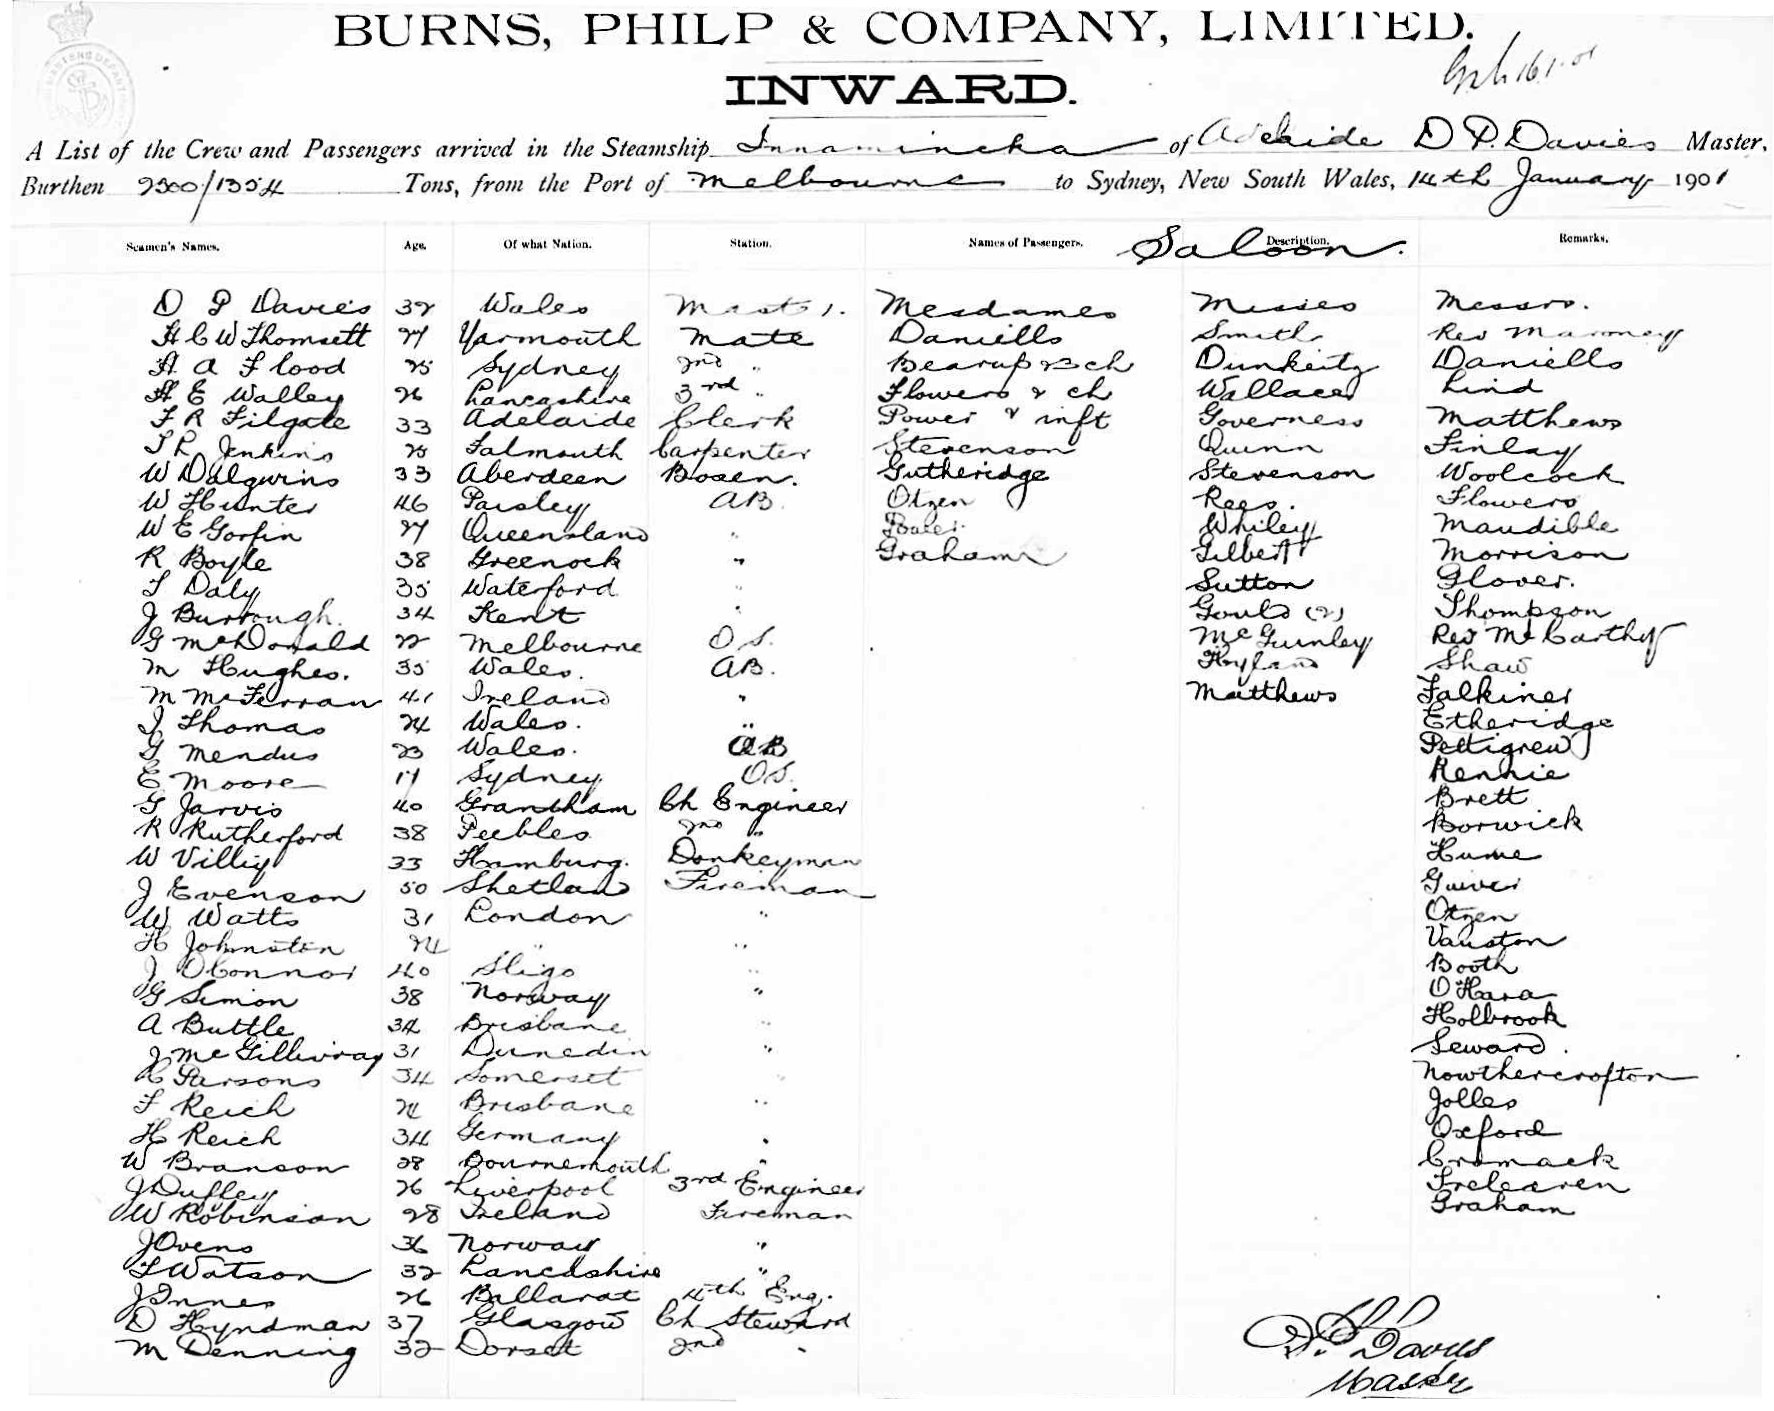 BURNS, PHILP & COMPANY, LIMITED.
INWARD.
A List of the Crew and Passengers arrived in the Steamship Innamincka of Adelaide D P. Davies Master,
Burthen 2500/1354 Tons, from the Port of Melbourne to Sydney, New South Wales, 14th January 1901
Seamen's Names. Age. Of what Nation. Station. Names of Passengers. Saloon. Description. Remarks.
D P Davies 32 Wales Mastr. Mesdames Misses Messrs.
H C W Thomsett 27 Yarmouth Mate Daniells Smith Rev Maroney
H A Flood 25 Sydney 2nd " Bearup & 3 ch Dunkeitz Daniells
H E Walley 26 Lancashire 3rd " Flowers & ch Wallace Lind
F R Filgate 33 Adelaide Clerk Power & inft Governess Matthews
T R Jenkins 25 Falmouth Carpenter Stevenson Quinn Finlay
W Dalgwins 33 Aberdeen Bosen. Gutheridge Stevenson Woolcock
W Hunter 46 Paisley AB. Otzen Rees. Flowers
W E Gorfin 27 Queensland " Whiley Maudible
R Boyle 38 Greenock " Graham Gilbert Morrison
T Daly 35 Waterford " Sutton Glover.
J Burrough. 34 Kent " Gould (2) Thompson
G McDonald 22 Melbourne O S. McGunley Rev McCarthy
M Hughes. 35 Wales. AB. Hyland Shaw
M McFerran 41 Ireland " Matthews Falkiner
J Thomas 24 Wales. " Etheridge
G Mendus 23 Wales. AB Pettigrew
E Moore 17 Sydney OS. Rennie
G Jarvis 40 Grantham Ch Engineer Brett
R Rutherford 38 Peebles 2nd " Borwick
W Villig 33 Hamburg. Donkeyman Hume
J Evenson 50 Shetland Fireman Guiver
W Watts 31 London " Otzen
H Johnston 24 " " Vauston
J OConnor 40 Sligo " Booth
G Simon 38 Norway " O Hara
A Buttle 34 Brisbane " Holbrook
J McGillivray 31 Dunedin " Seward.
C Parsons 34 Somerset " Nowthercrofton
F Reich 24 Brisbane " Jolles
H Reich 34 Germany " Oxford
W Branson 28 Bournemouth " Cromack
J Dufley 26 Liverpool 3rd Engineer Trelearen
W Robinson 28 Ireland Fireman Graham
J Ovens 36 Norway "
T Watson 32 Lancashire "
J Innes 26 Ballarat 4th Eng.
D Hyndman 37 Glasgow Ch Steward
M Denning 32 Dorset 2nd "
D P Davies
Master